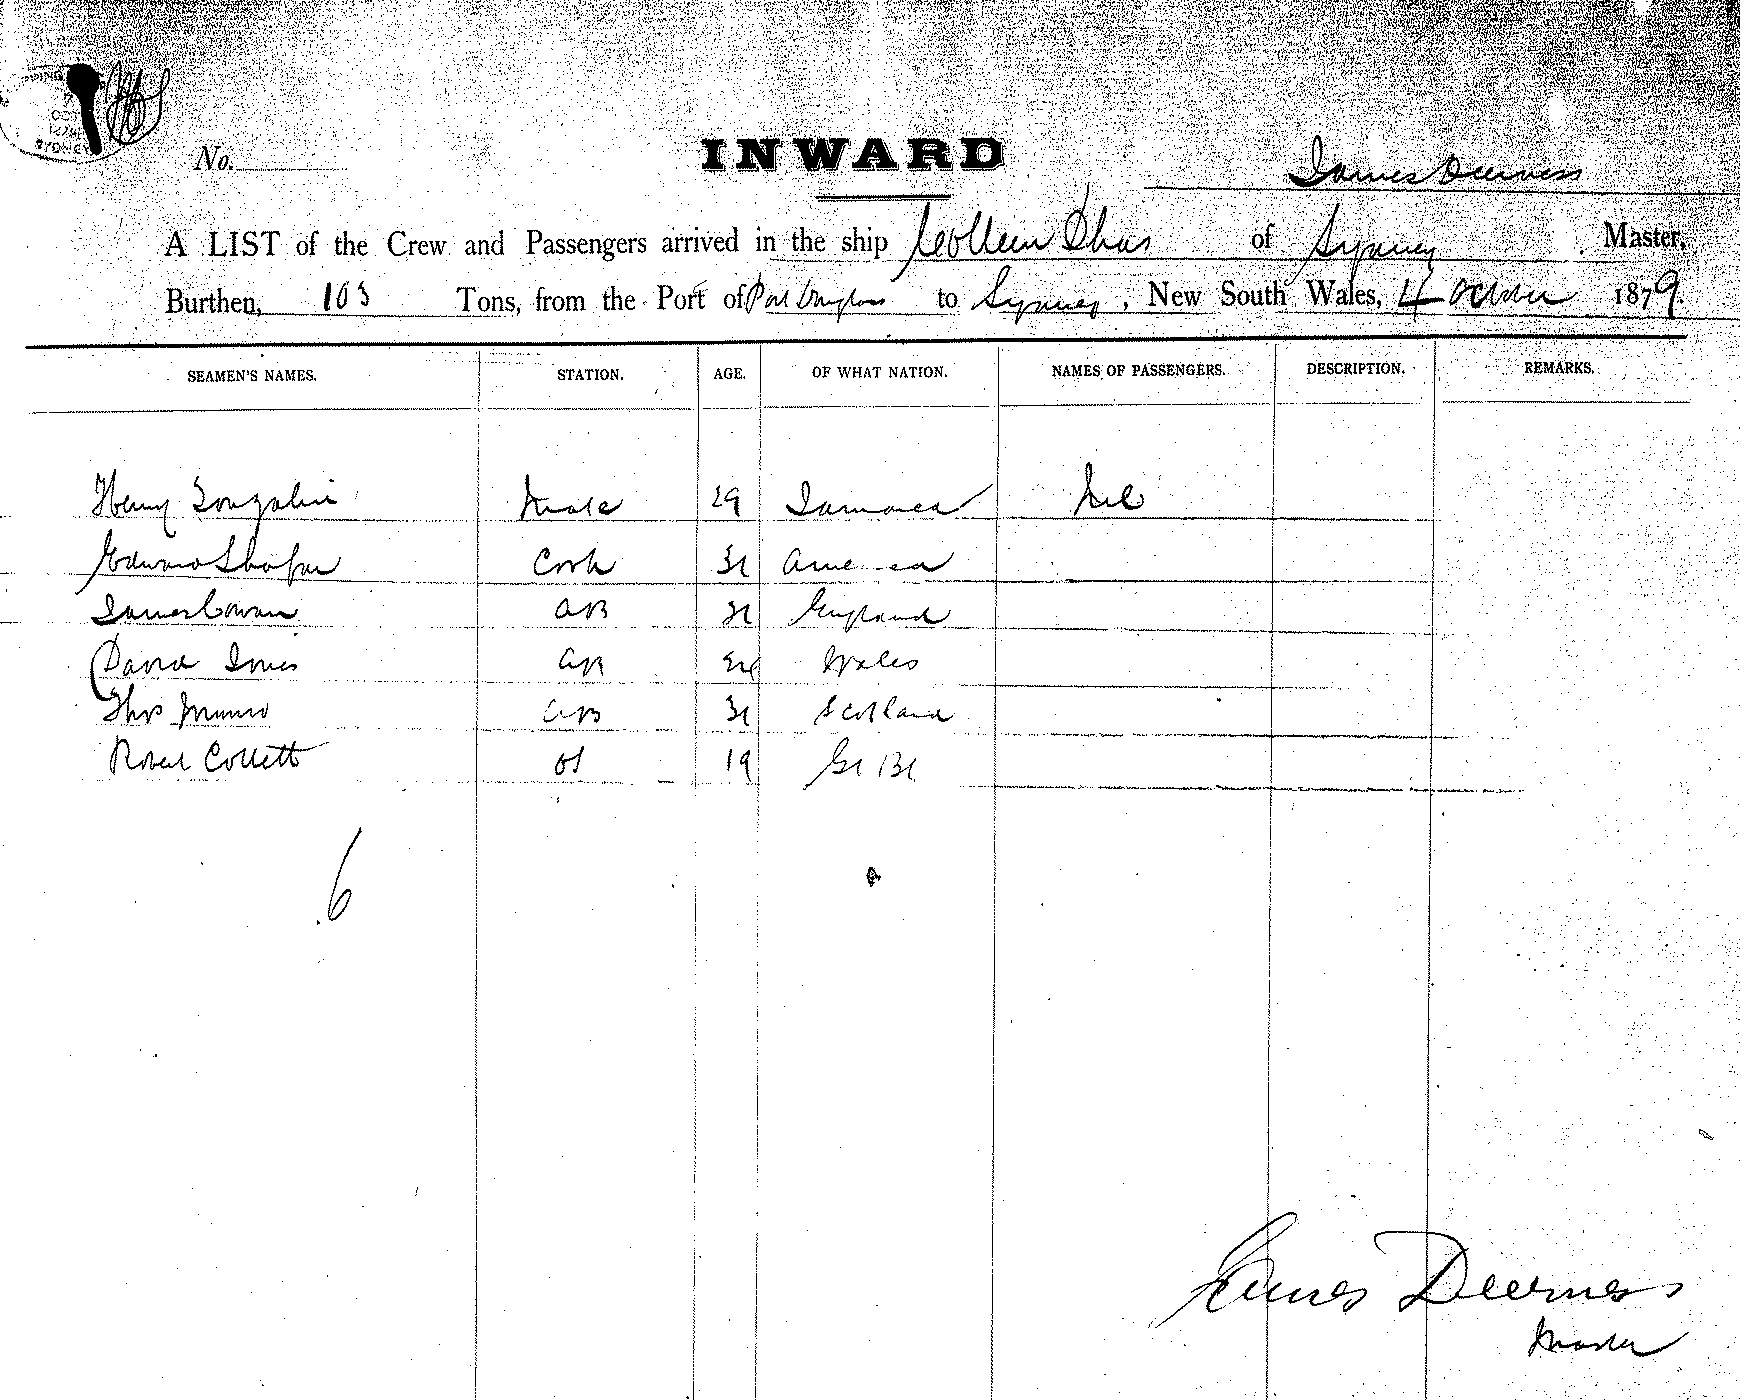 SYDNEY
No.
INWARD
James Deerness
A LIST of the Crew and Passengers arrived in the ship of Sydney Master,
Burthen, 103 Tons, from the Port of Port Douglas to Sydney, New South Wales, 4 October 1879.
SEAMEN'S NAMES. STATION. AGE. OF WHAT NATION. NAMES OF PASSENGERS. DESCRIPTION. REMARKS.
Henry 29 Jamaica Nil
Edward Cook America
James Cowan AB England
David Jones AB Wales
Thos Munro AB Scotland
Robert Collett OS 19 Gt Bt
6
James Deerness
Master